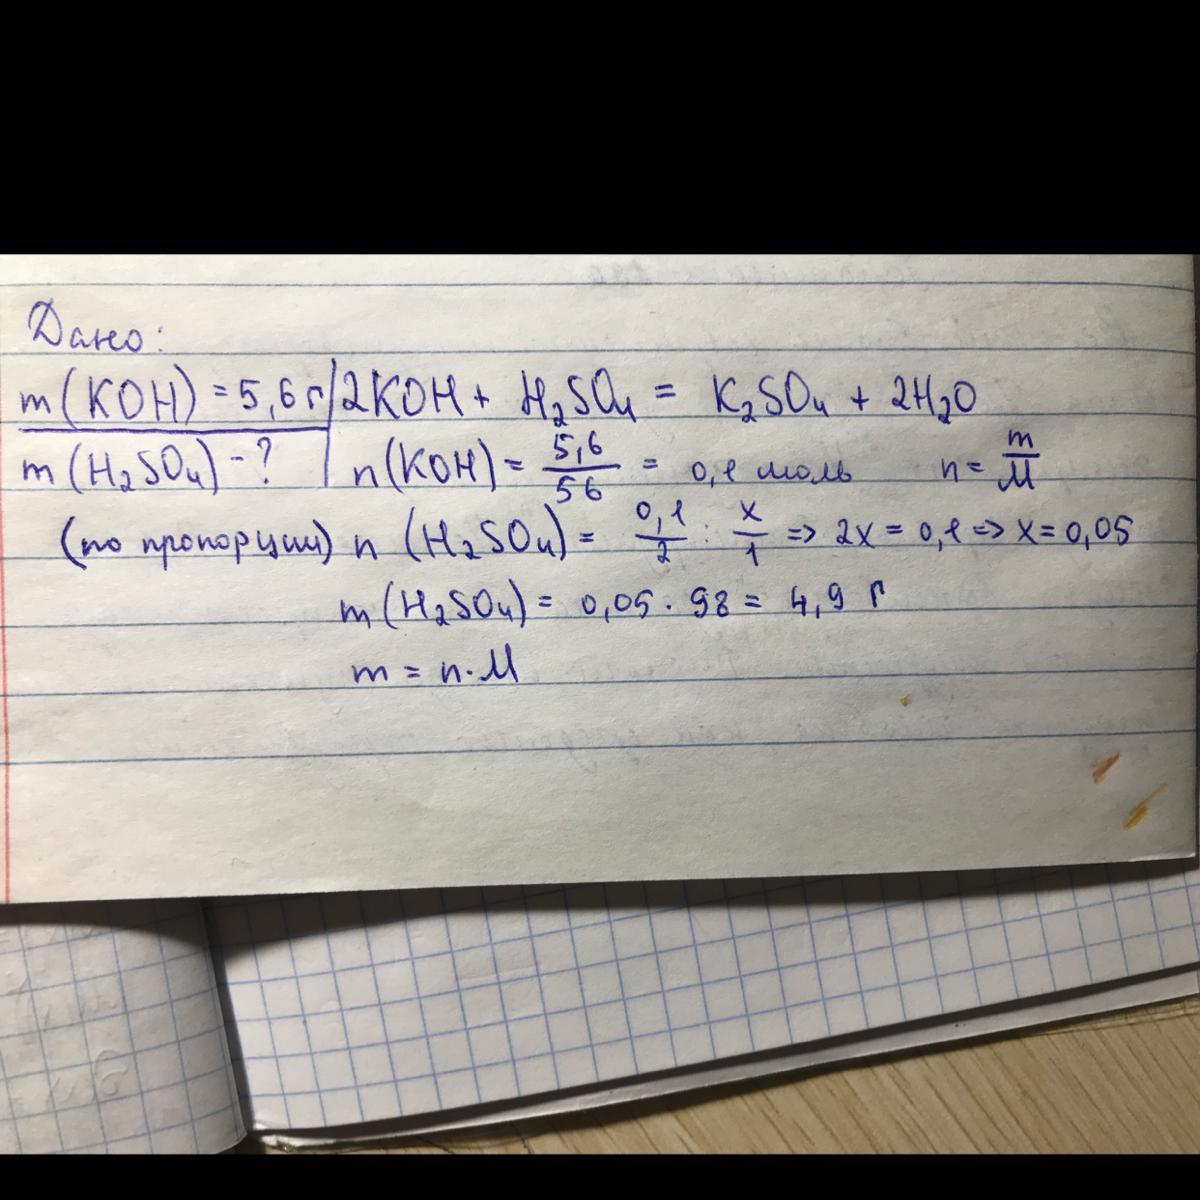 Дано:
m(KOH) = 5,6 г | 2KOH + H₂SO₄ = K₂SO₄ + 2H₂O
m(H₂SO₄) - ? | n(KOH) = 5,6/56 = 0,1 моль n = m/M
(по пропорции) n (H₂SO₄) = 0,1/2 : x/1 => 2x = 0,1 => x = 0,05
m(H₂SO₄) = 0,05 · 98 = 4,9 г
m = n·M